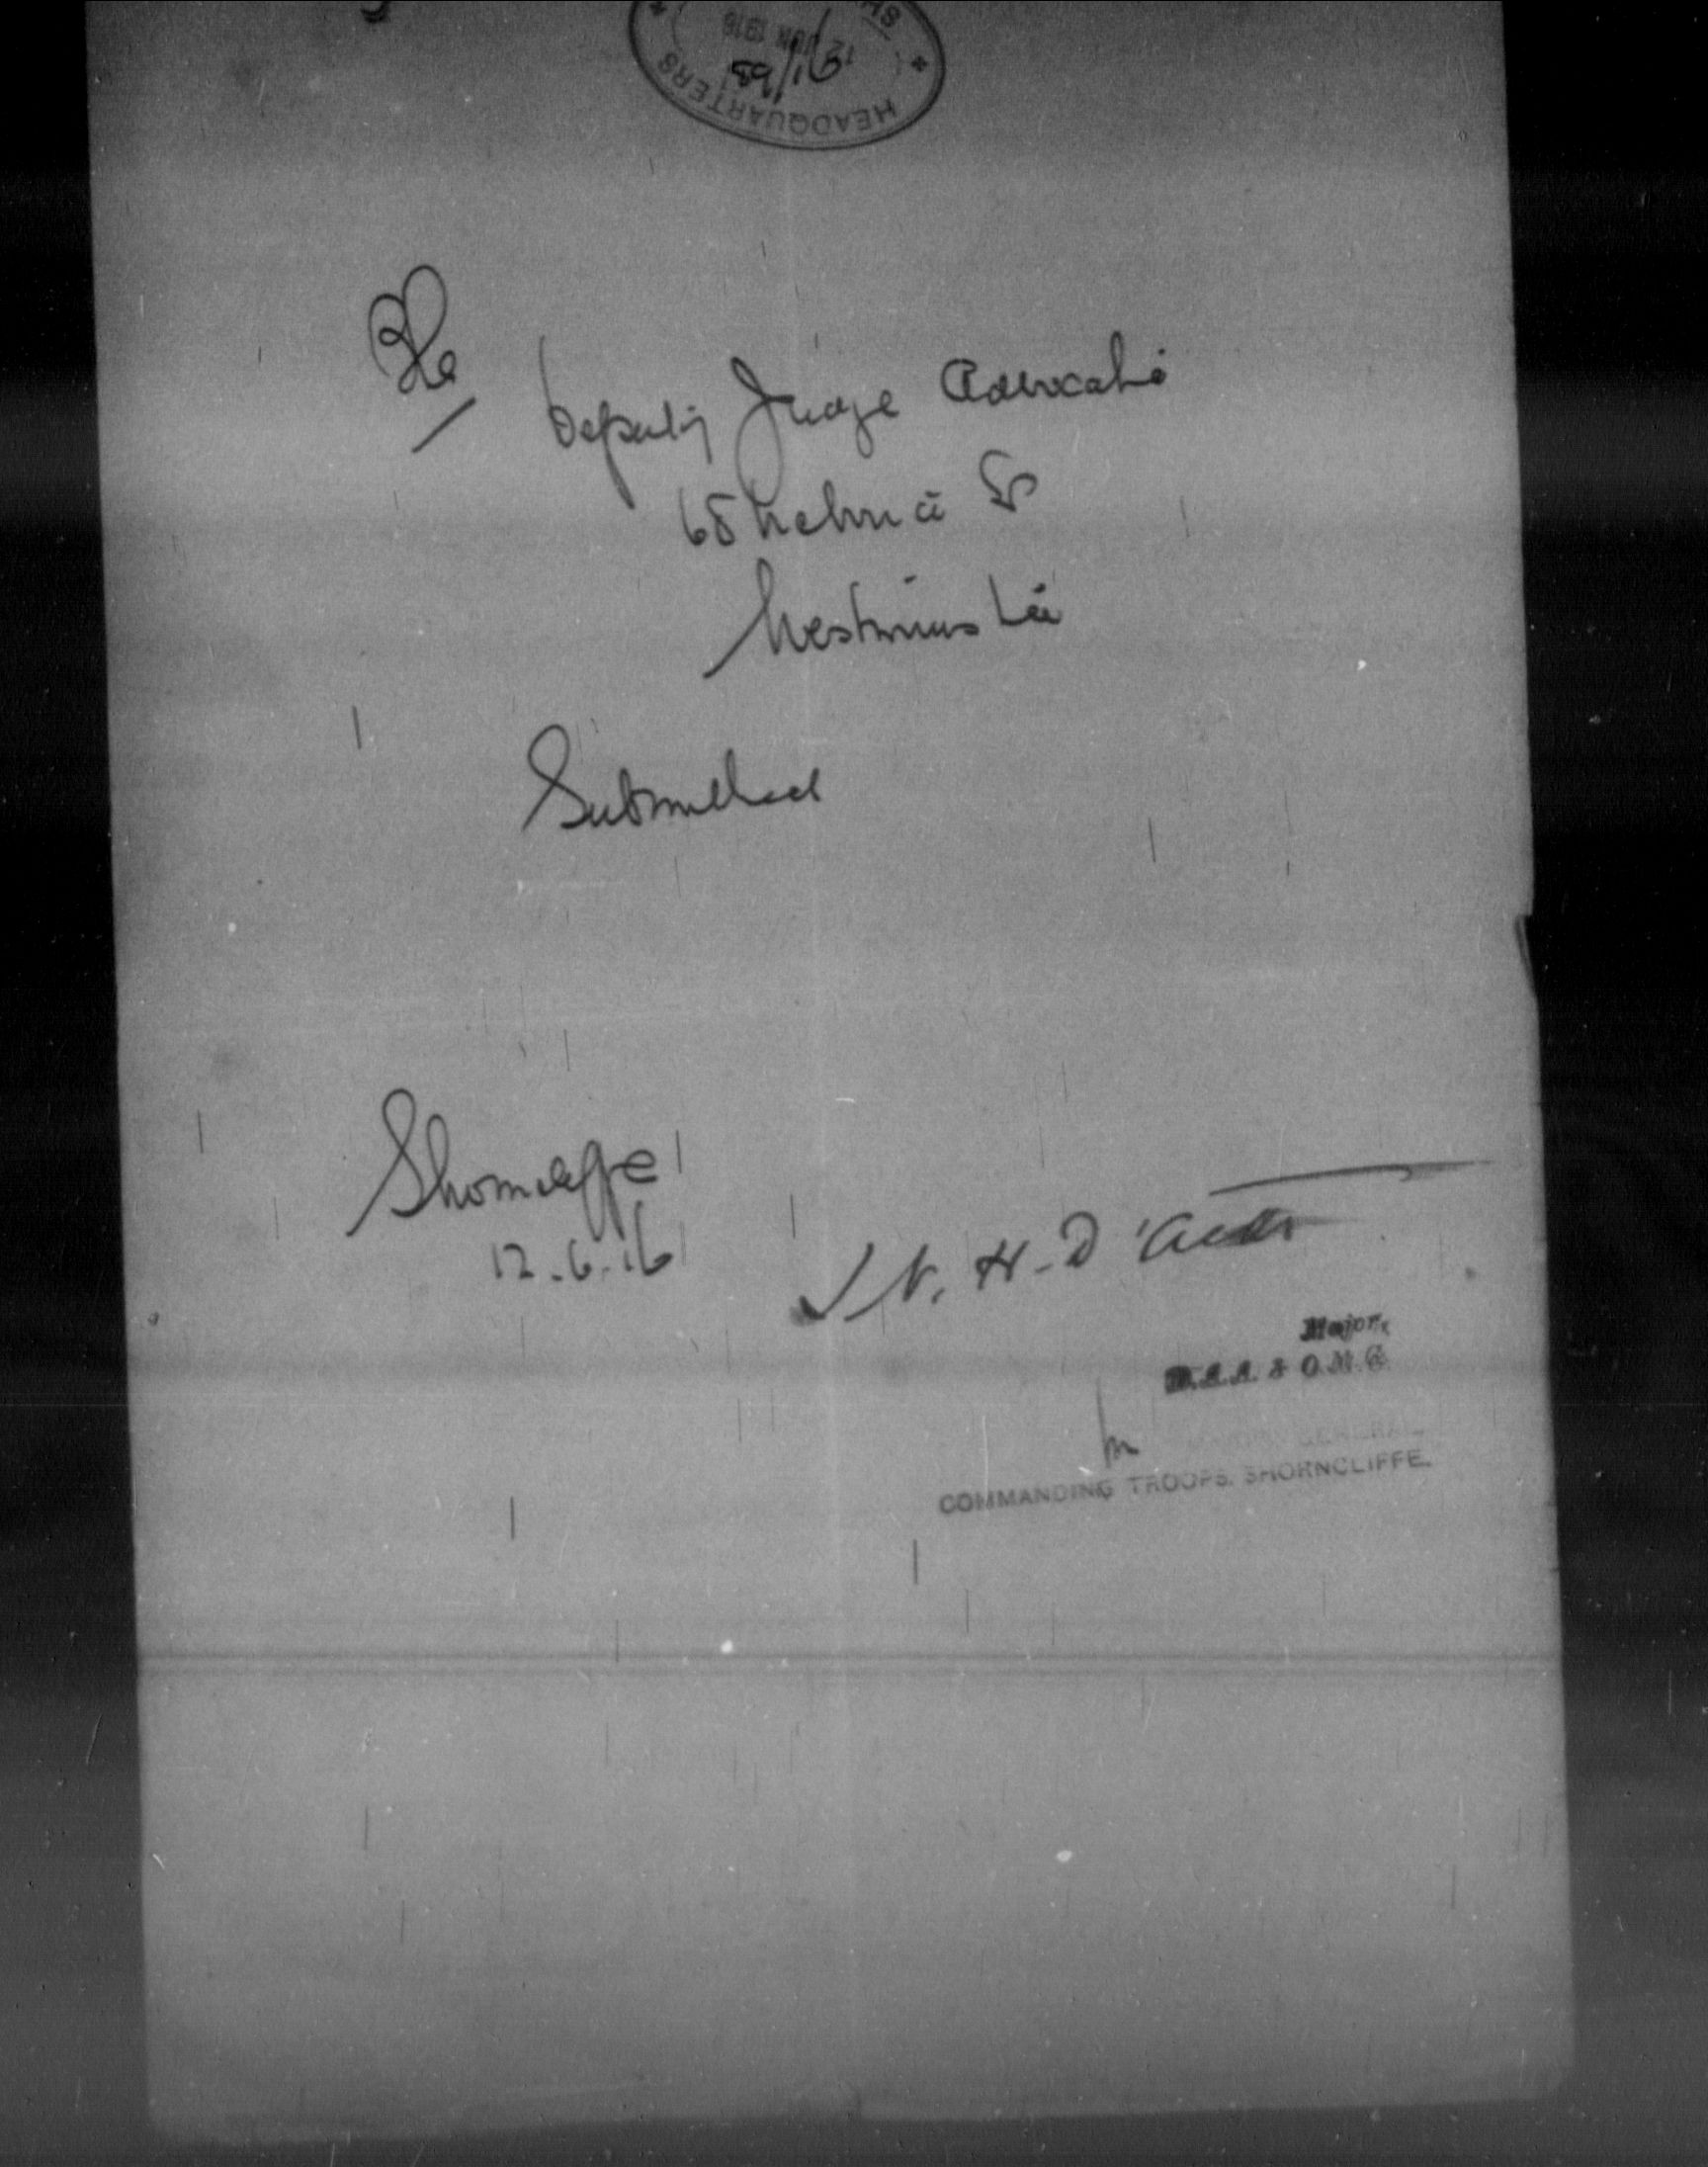 HEADQUARTERS
12 JUN 1916
The
Deputy Judge Advocate
68 Victoria St
Westminster
Submitted
Shorncliffe
12.6.16
Major,
D.A.A. & Q.M.G.
GENERAL
COMMANDING TROOPS. SHORNCLIFFE.